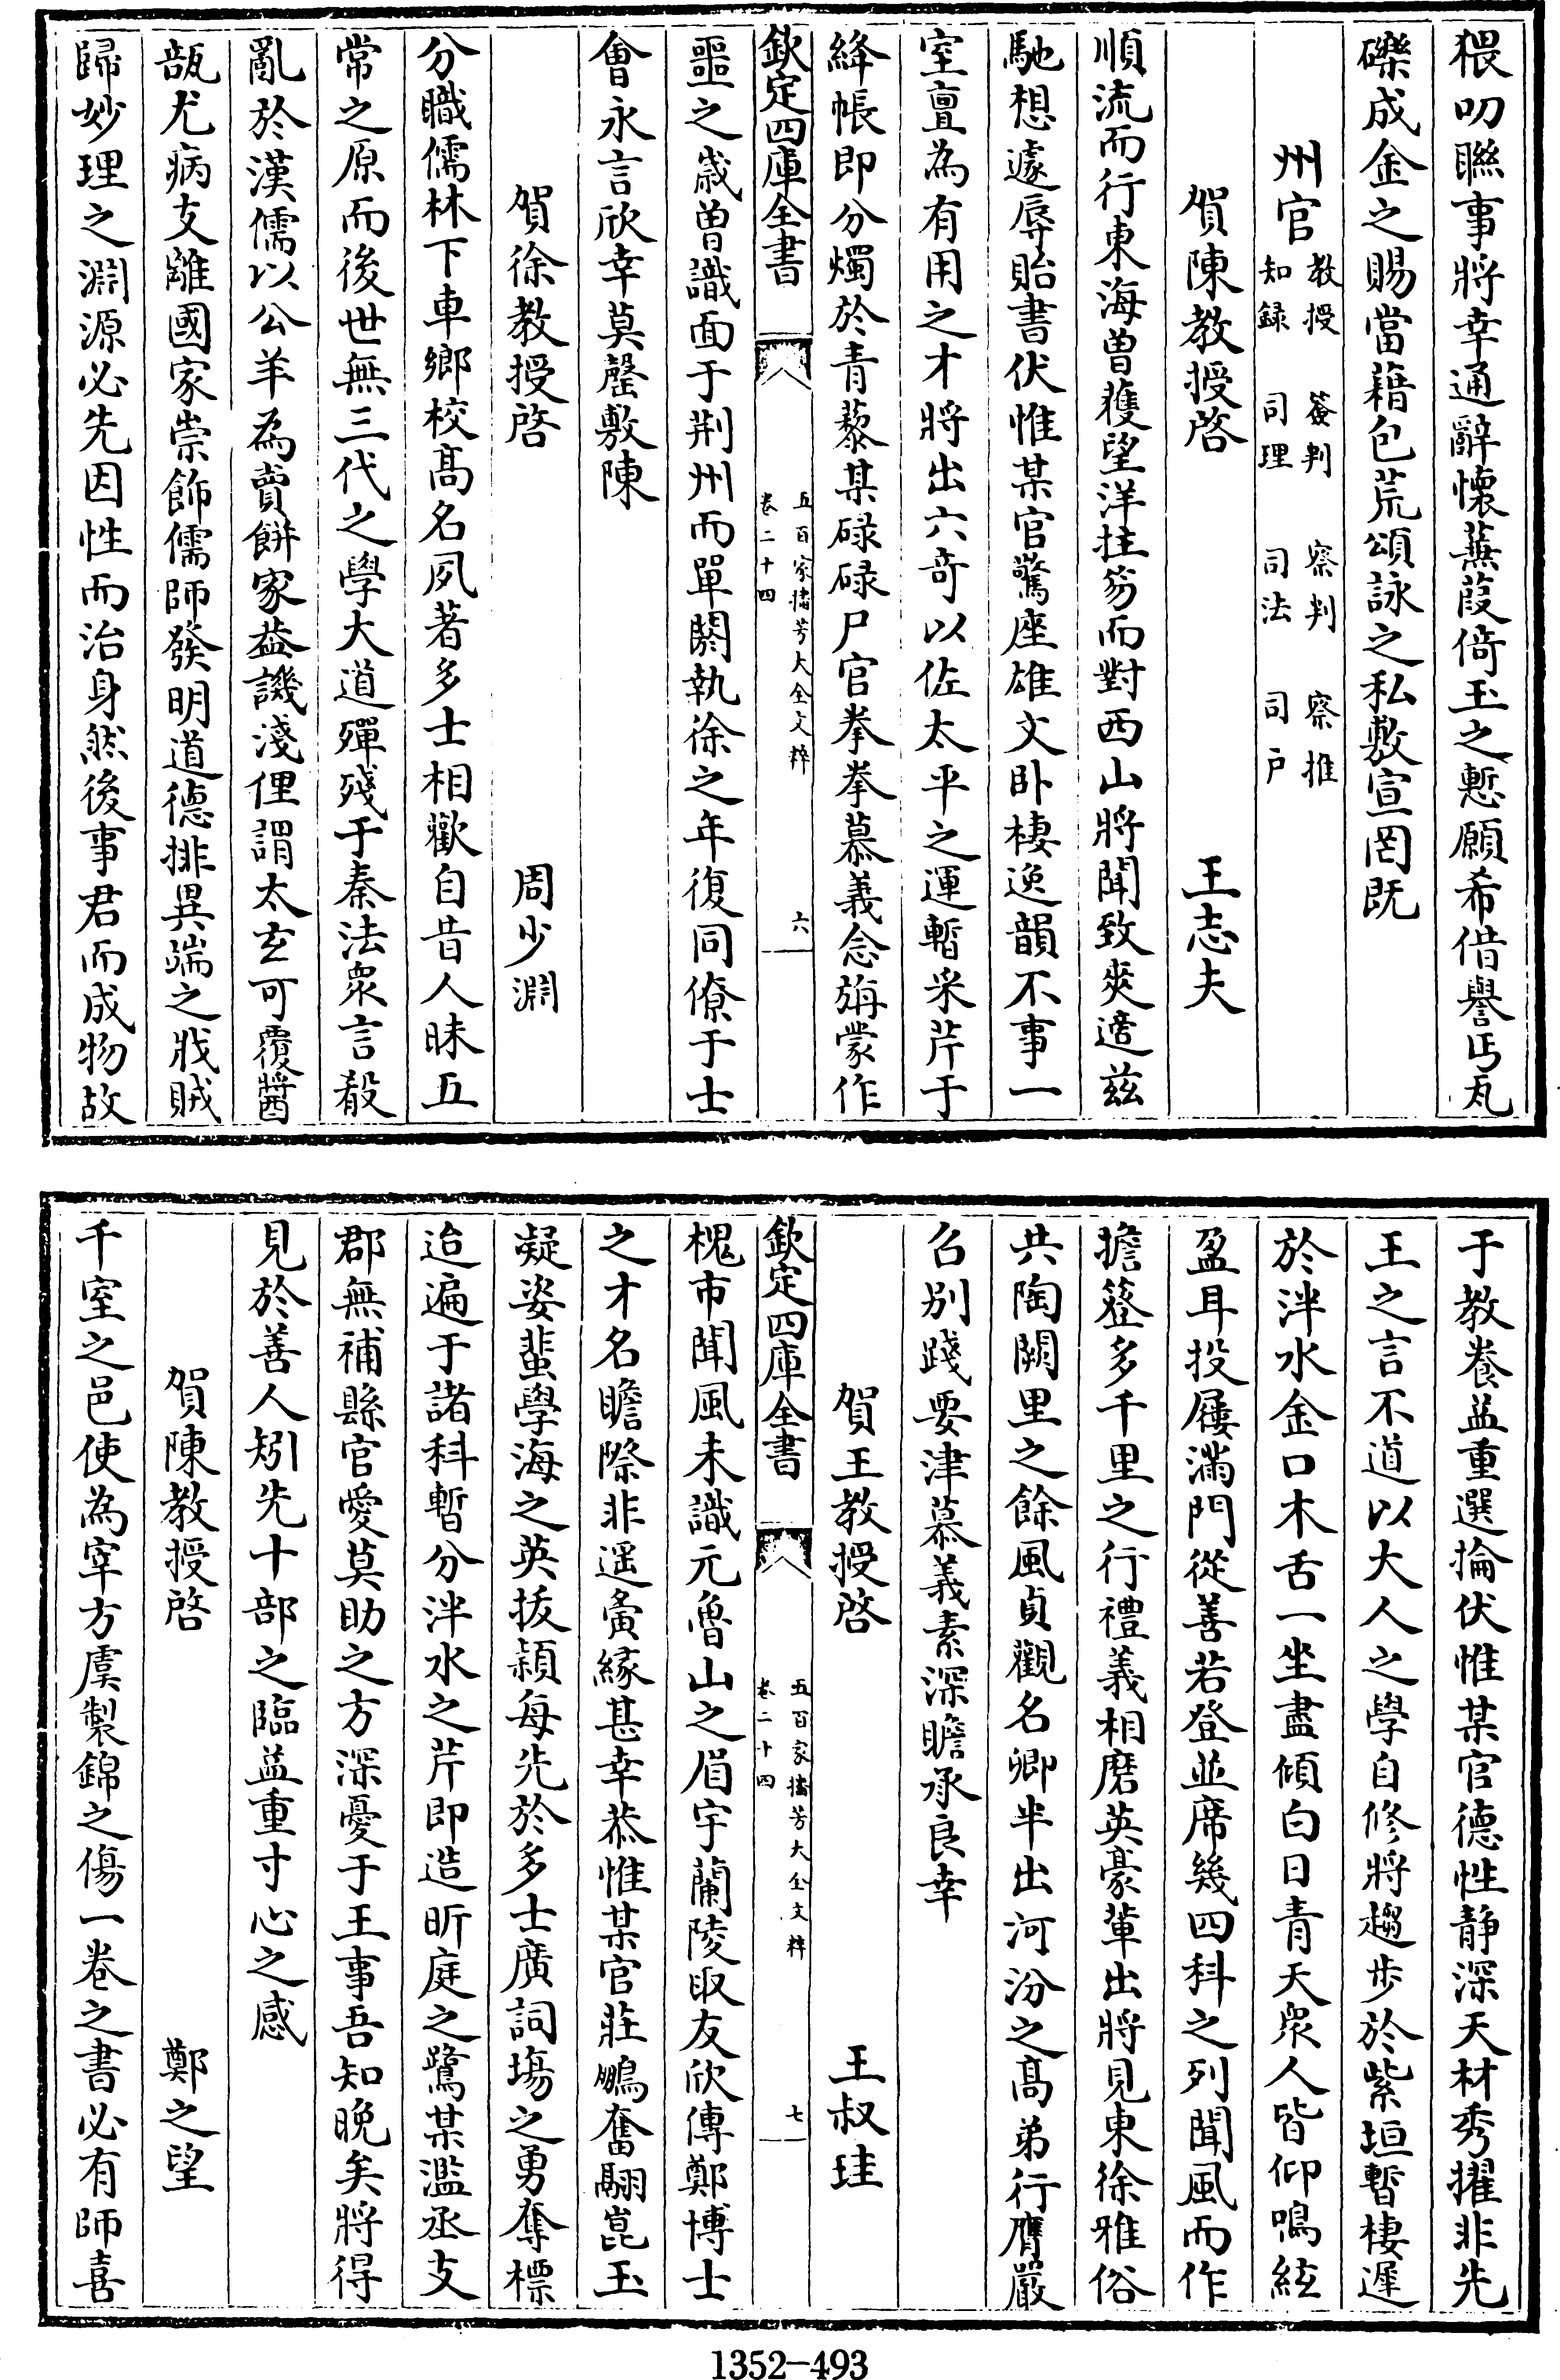 猥叨聯事將幸通辭懷蕪葭倚玉之慙願希借譽丐瓦
礫成金之賜當藉包荒頌詠之私敷宣罔既
州官教授 簽判 察判 察推
知錄 司理 司法 司戶
賀陳教授啓 王志夫
順流而行東海曾獲望洋拄笏而對西山將聞致爽適茲
馳想遽辱貽書伏惟某官驚座雄文卧棲逸韻不事一
室亶為有用之才將出六奇以佐太平之運暫采芹于
絳帳即分燭於青藜某碌碌尸官拳拳慕義念旃蒙作
欽定四庫全書
五百家播芳大全文粹
卷二十四
六
噩之歲曾識面于荆州而單閼執徐之年復同僚于士
會永言欣幸莫罄敷陳
賀徐教授啓 周少淵
分職儒林下車鄉校髙名夙著多士相歡自昔人昧五
常之原而後世無三代之學大道殫殘于秦法衆言殽
亂於漢儒以公羊為賣餅家益譏淺俚謂太玄可覆醬
瓿尤病支離國家崇飾儒師發明道德排異端之戕賊
歸妙理之淵源必先因性而治身然後事君而成物故
于教養益重選掄伏惟某官德性靜深天材秀擢非先
王之言不道以大人之學自修將趨步於紫垣暫棲遲
於泮水金口木舌一坐盡傾白日青天衆人皆仰鳴絃
盈耳投屨滿門從善若登並席幾四科之列聞風而作
擔簦多千里之行禮義相磨英豪輩出將見東徐雅俗
共陶闕里之餘風貞觀名卿半出河汾之髙弟行膺嚴
召别踐要津慕義素深瞻承良幸
賀王教授啓 王叔珪
欽定四庫全書
五百家播芳大全文粹
卷二十四
七
槐市聞風未識元魯山之眉宇蘭陵取友欣傳鄭博士
之才名瞻際非遥夤緣甚幸恭惟某官莊鵬奮翮崑玉
凝姿蜚學海之英拔穎每先於多士廣詞塲之勇奪標
迨遍于諸科暫分泮水之芹即造昕庭之鷺某濫丞支
郡無補縣官愛莫助之方深憂于王事吾知晚矣將得
見於善人矧先十部之臨益重寸心之感
賀陳教授啓 鄭之望
千室之邑使為宰方虞製錦之傷一卷之書必有師喜
1352-493